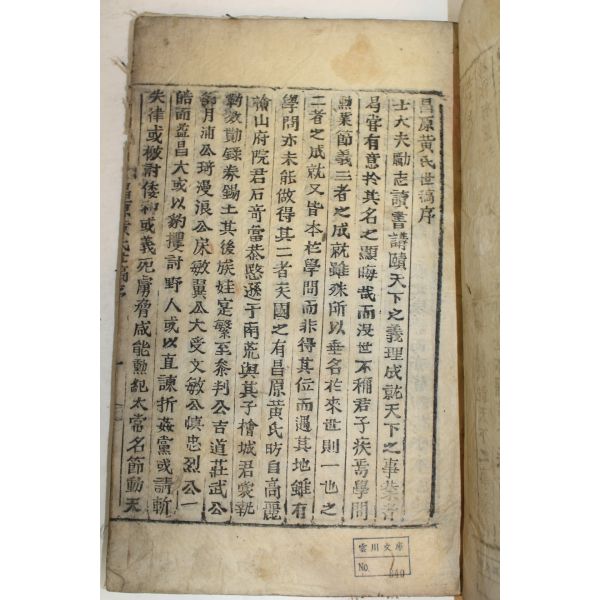 昌原黃氏世稿序
士大夫勵志讀書講賾天下之義理成就天下之事業者
曷嘗有意於其名之顯晦哉而沒世不稱君子疾焉學問
勳業節義三者之成就雖殊所以垂名於來世則一也之
二者之成就又皆本於學問而非得其位而遇其地雖有
學問亦未能做得其二者矣國之有昌原黃氏昉自高麗
檜山府院君石奇當恭愍遜于南荒與其子檜城君裳執
勤數勳錄券錫土其後族姓寔繁至參判公吉道莊武公
衡月浦公琦漫浪公㦿敏翼公大受文敏公愼忠烈公一
皓面盎昌大或以豹攫討野人或以直諫折姦黨或請斬
失律或檄討倭和或義死虜脅咸能勳紀太常名節動天
昌原黃氏世稿序
一
雲川文庫
No
840